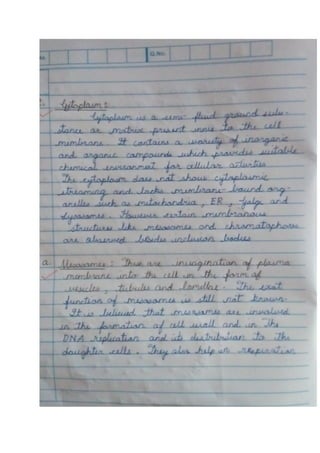 Q.No.
Cytoplasm :
Cytoplasm is a semi-fluid ground subs-
tance or matrix present inner to the cell
membrane. It contains a variety of inorganic
and organic compounds which provides suitable
chemical environment for cellular activities
The cytoplasm does not show cytoplasmic
streaming and lacks membrane bound org-
anelles such as mitochondria, ER, Golgi and
Lysosomes. However certain membranous
structures like mesosomes and chromatophores
are observed besides inclusion bodies
a Mesosomes : These are invagination of plasma
membrane into the cell in the form of
vesicles, tubules and lamellae. The exact
function of mesosomes is still not known.
It is believed that mesosomes are involved
in the formation of cell wall and in the
DNA replication and its distribution to the
daughter cells. They also help in respiration